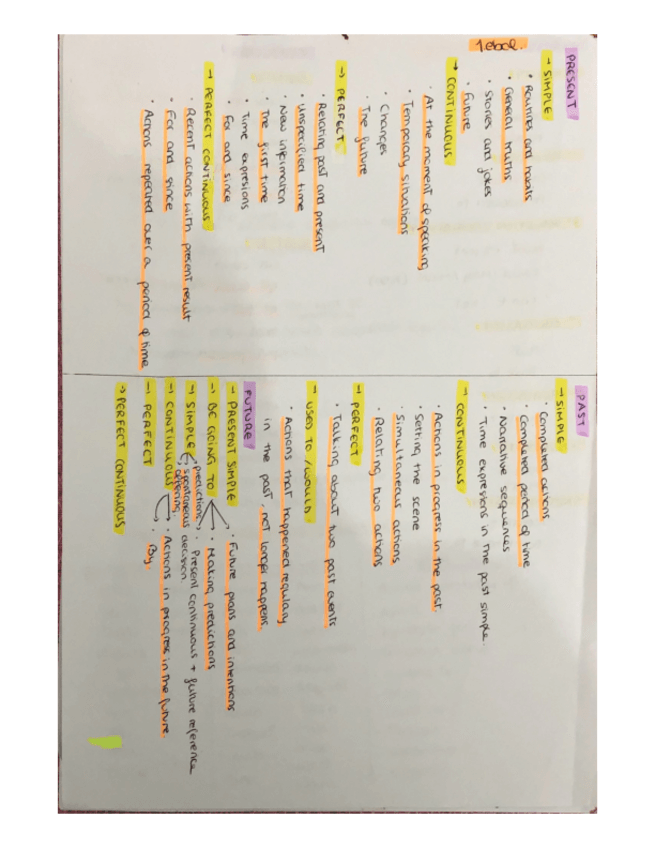 1. eboe.
PRESENT
→ SIMPLE
· Routines and habits
· General truths
· Stories and jokes
· Future
→ CONTINUOUS
· At the moment of speaking
· Temporary situations
· Changes
· The future
→ PERFECT
· Relating past and present
· Unspecified time
· New information
· The first time
· Time expresions
· For and since
→ PERFECT CONTINUOUS
· Recent actions with present result
· For and since
· Actions repeated over a period of time
PAST
→ SIMPLE
· Completed actions
· Completed period of time
· Narrative sequences
· Time expresions in the past simple.
→ CONTINUOUS
· Actions in progress in the past.
· Setting the scene
· Simultaneous actions
· Relating two actions
→ PERFECT
· Talking about two past events
→ USED TO / WOULD
· Actions that happened regulary
in the past, not longer happens.
FUTURE
→ PRESENT SIMPLE
· Future plans and intentions
→ BE GOING TO
· Making predictions
→ SIMPLE
predictions,
spontaneous decision
offering.
· Present continuous + future reference
→ CONTINUOUS
· Actions in progress in the future.
→ PERFECT
· By.
→ PERFECT CONTINUOUS